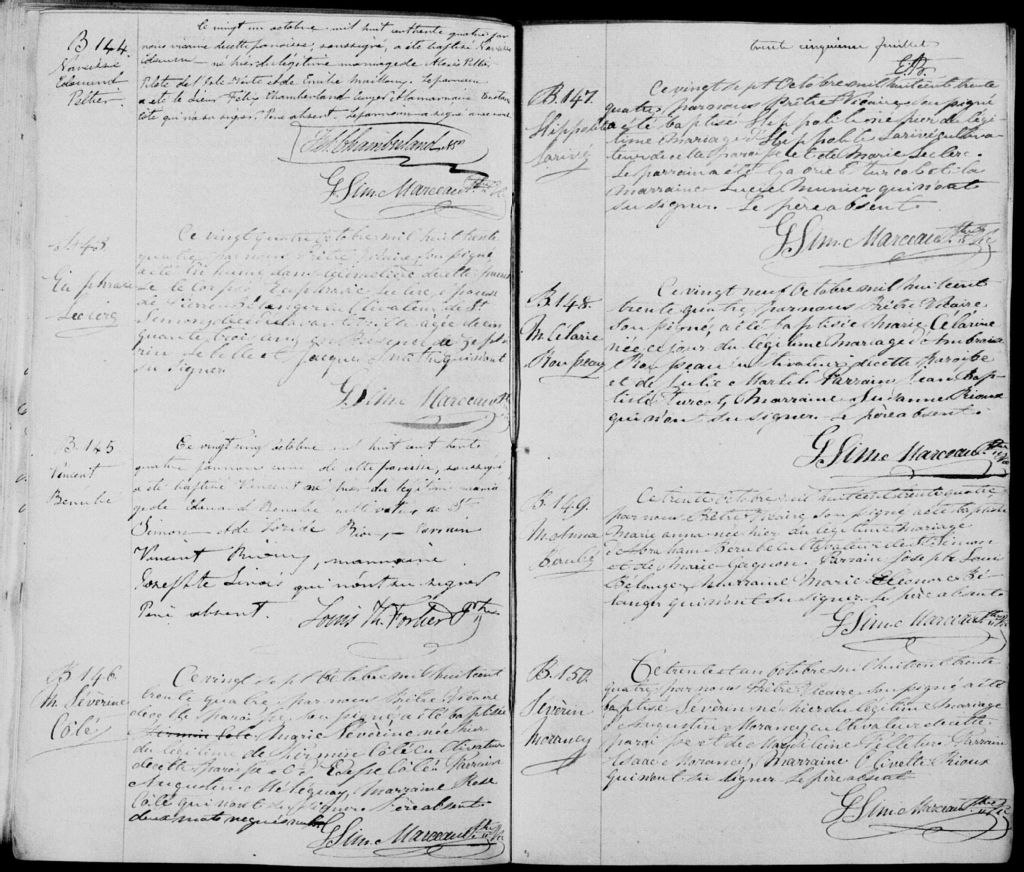 B 144.
Edmund
Peltier.
Ce vingt un octobre mil huit cent trente quatre par
nous vicaire de cette paroisse, soussigné, a été baptisé
né hier du légitime mariage de Alexis Peltier
Pilote de l'Isle Verte et de Emilie Mailloux. Le parrain
a été le Sieur Félix Chamberland
qui n'a su signer. Père absent. Le parrain a signé avec nous
F. Chamberland
G. Sim. Marceau Ptre Vic
Euphrasie
Leclerc
Ce vingt quatre Octobre mil huit cent trente
quatre, par nous Prêtre Vicaire soussigné,
a été inhumé dans le cimetière de cette paroisse
le corps d'Euphrasie Leclerc, épouse
de Pierre Bélanger cultivateur de St
Simon, décédée avant hier âgée de cin
quante trois ans en présence de
qui n'ont
su signer.
G. Sim. Marceau Ptre
B. 145
Vincent
Berubé
Ce vingt cinq octobre mil huit cent trente
quatre par nous curé de cette paroisse, soussigné
a été baptisé Vincent né hier du légitime maria
ge de Edouard Berubé cultivateur de St
Simon & de Rioux, parrain
Vincent Rioux, marraine
Josephte qui n'ont su signer
Père absent. Louis Th. Fortier Ptre
B 146
M. Séverine
Côté
Ce vingt sept Octobre mil huit cent
trente quatre, par nous Prêtre Vicaire
de cette paroisse soussigné, a été baptisée
Marie Séverine née hier
du légitime de Firmin Côté cultivateur
de cette paroisse & d' Côté. Parrain
Augustin Marraine Rose
Côté qui n'ont su signer. Père absent
deux mots nuls
G. Sim. Marceau Ptre Vic
trente cinquième feuillet
B. 147.
Hippolite
Larivé
Ce vingt sept Octobre mil huit cent trente
quatre, par nous Prêtre Vicaire, soussigné
a été baptisé Hippolite né hier de légi
time mariage d'Hippolite Larivé cultiva
teur de cette paroisse et de Marie Leclerc.
Le parrain a été Gabriel Turcot et la
marraine Lucie Munier qui n'ont
su signer. Le père absent
G. Sim. Marceau Ptre Vic
B. 148.
M. Célarie
Rousseau
Ce vingt neuf Octobre mil huit cent
trente quatre, par nous Prêtre Vicaire
soussigné, a été baptisée Marie Célarine
née ce jour du légitime mariage d'Ambroise
Rousseau cultivateur de cette Paroisse
et de Julie Martin. Parrain Jean Bap
tiste Turcot, Marraine Suzanne Rioux
qui n'ont su signer. Le père absent.
G. Sim. Marceau Ptre Vic
B. 149.
M. Anna
Ce trente Octobre mil huit cent trente quatre
par nous Prêtre Vicaire, soussigné a été baptisée
Marie anna née hier du légitime mariage
d'Abraham Berubé cultivateur de St Simon
et de Marie Gagnon. Parrain Joseph Louis
Bélanger, Marraine Marie Eléonore Bé
langer qui n'ont su signer. Le père absent
G. Sim. Marceau Ptre Vic
B. 150.
Séverin
Morancy
Ce trente et un Octobre mil huit cent trente
quatre, par nous Prêtre Vicaire, soussigné a été
baptisé Séverin né hier du légitime mariage
d'Augustin Morancy cultivateur de cette
paroisse et de Magdeleine Pelletier. Parrain
Isaac Morancy, Marraine Olivette Rioux
qui n'ont su signer. Le père absent
G. Sim. Marceau Ptre Vic